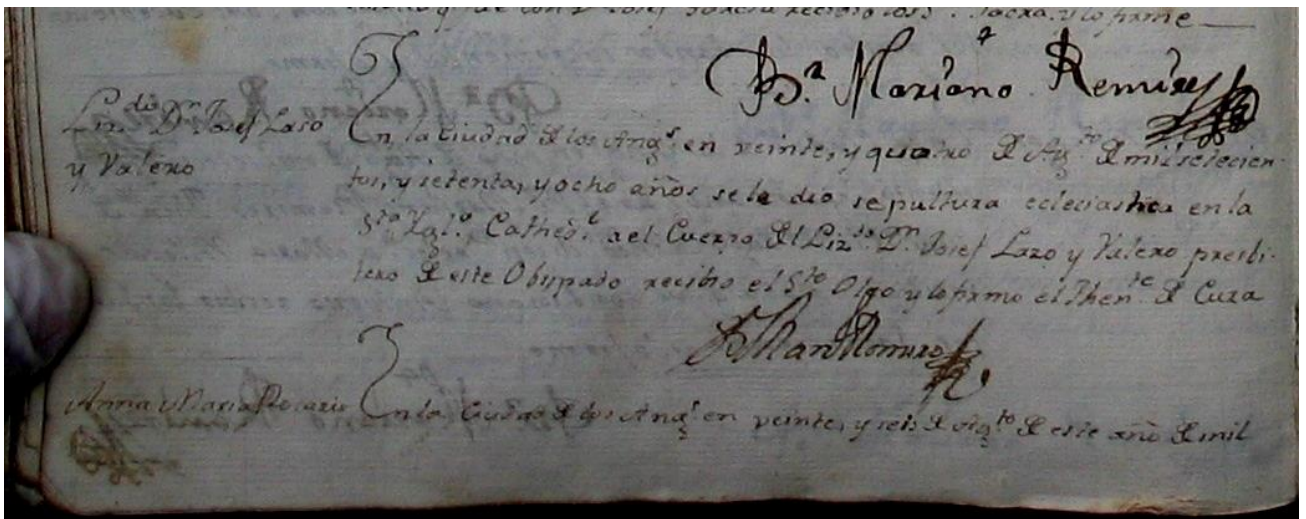 Josef Garcia recibio los S. Sacra. y lo firmé
Br. Mariano Remires
Lizdo. Dn. Josef Laso
y Valero
En la Ciudad de los Angs. en veinte, y quatro de Agto. de mil setecien-
tos, y setenta, y ocho años se le dio sepultura eclesiastica en la
Sta. Ygla. Cathedl. a el Cuerpo del Lizdo. Dn. Josef Lazo y Valero presbi-
tero de este Obispado recibio el Sto. Oleo y lo firmo el Thente. de Cura
Anna Maria Rosaria
En la Ciudad de los Angs. en veinte, y seis de Agto. de este año de mil